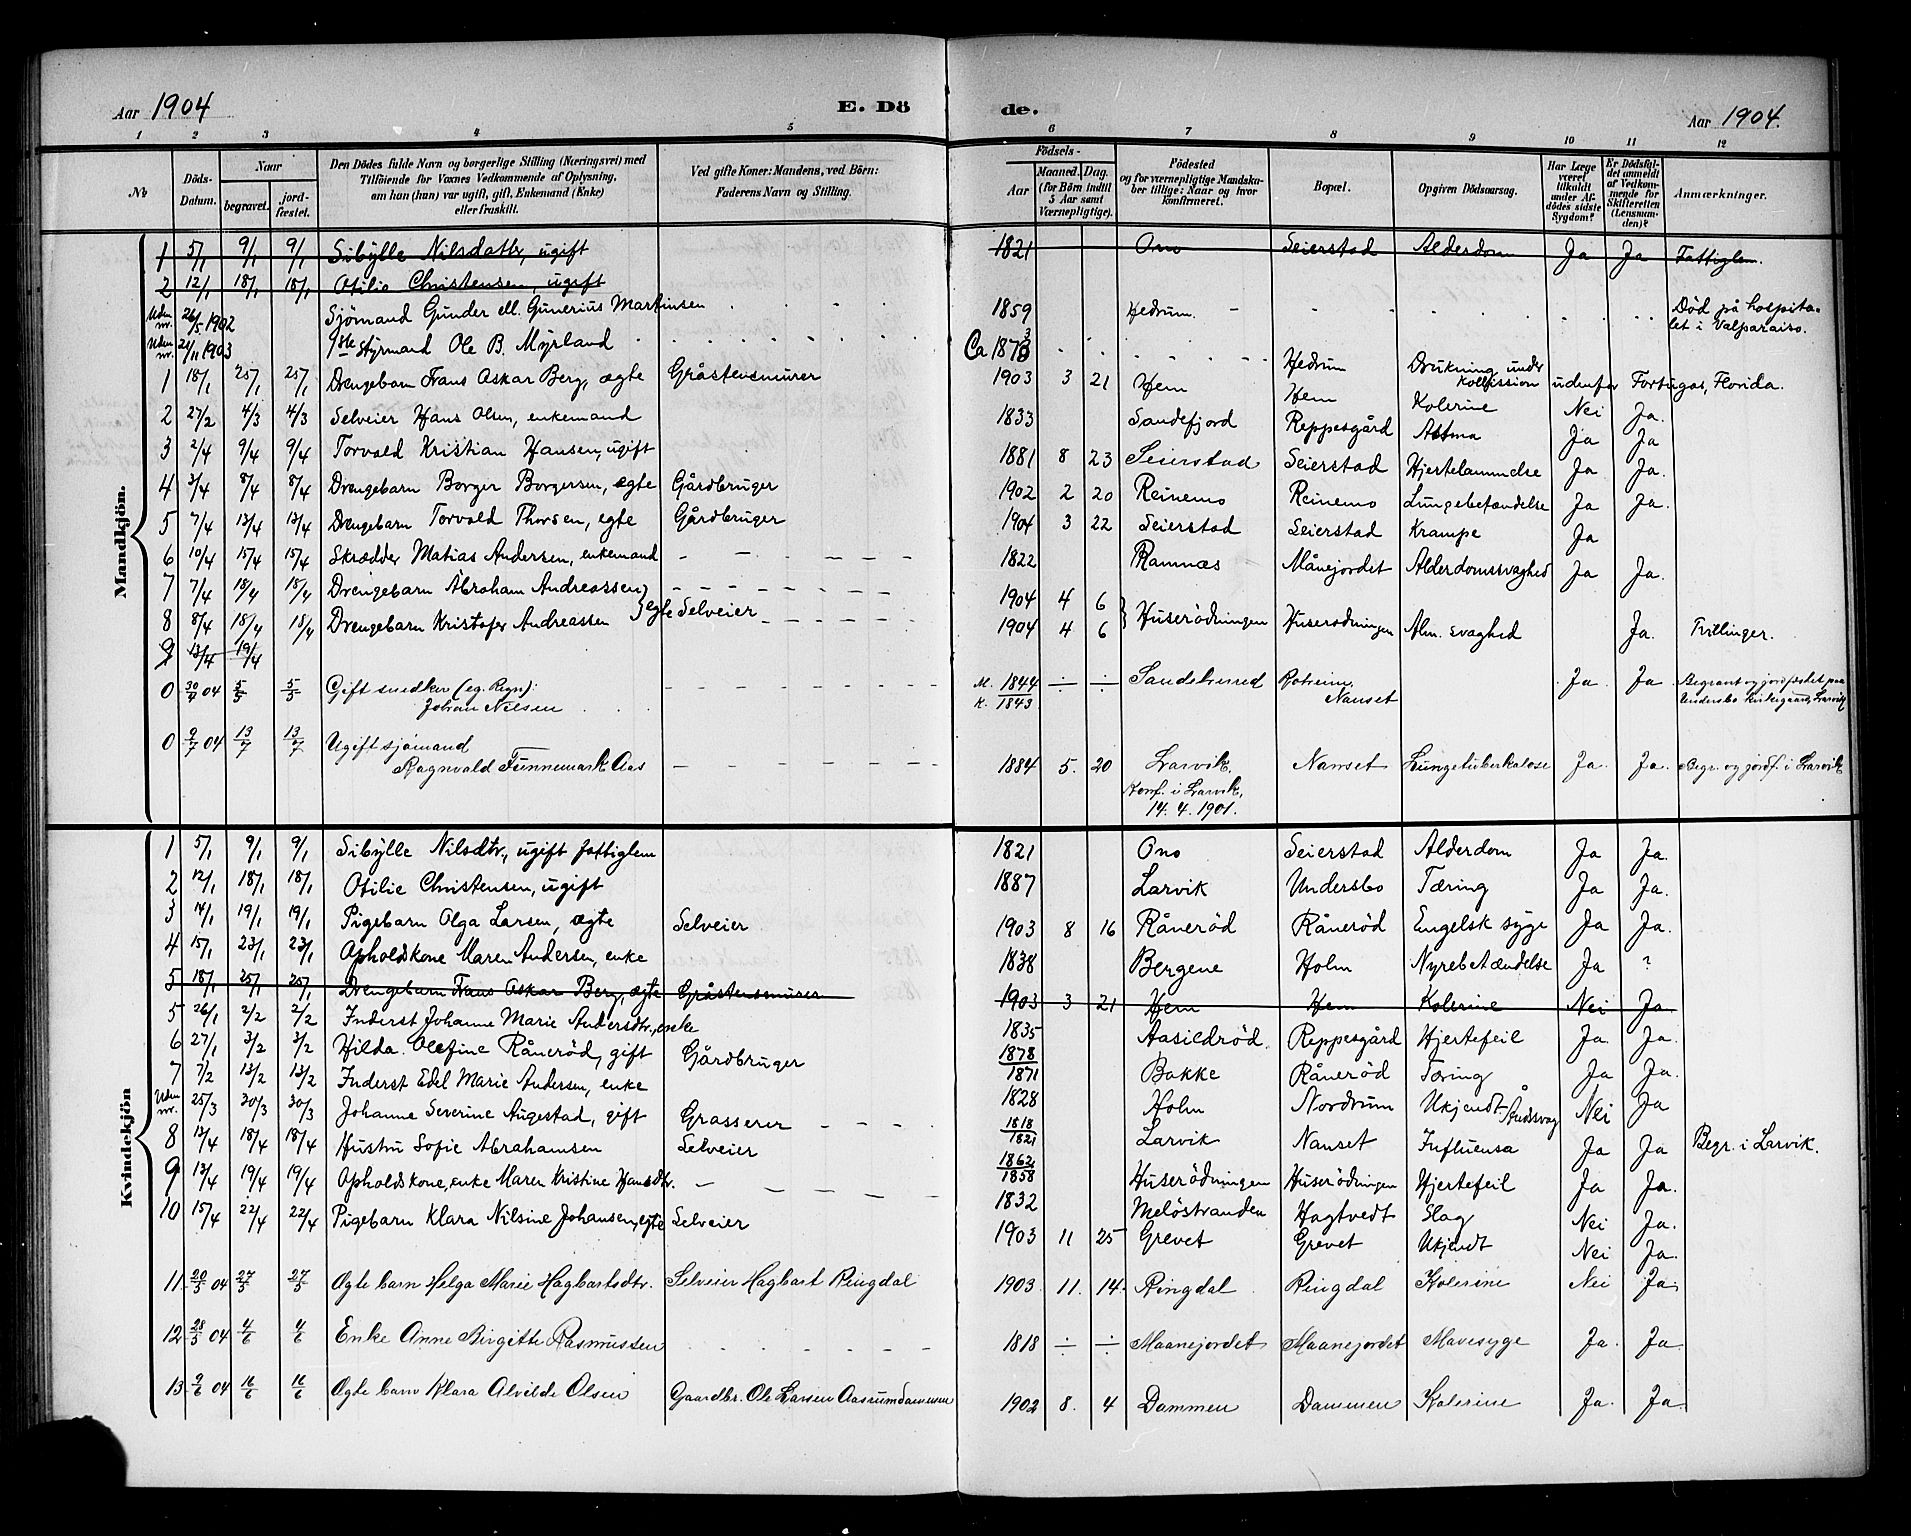 Aar 1904 E. Dö de. Aar 1904.
1 2 3 4 5 6 7 8 9 10 11 12
No Döds-Datum. Naar begravet. jordfæstet. Den Dödes fulde Navn og borgerlige Stilling (Næringsvei) med Tilföiende for Voxnes Vedkommende af Oplysning, om hun (han) var ugift, gift, Enkemand (Enke) eller fraskilt. Ved gifte Koner: Mandens, ved Börn: Faderens Navn og Stilling. Födsels- Aar Maaned. Dag. (for Börn indtil 5 Aar samt Værnepligtige). Födested og for værnepligtige Mandskaber tillige: Naar og hvor konfirmeret. Bopæl. Opgiven Dödsaarsag. Har Læge været tilkaldt under Afdödes sidste Sygdom? Er Dödsfaldet anmeldt af Vedkommende for Skifteretten (Lensmanden)? Anmærkninger.
Mandkjön.
1 5/1 9/1 9/1 Sibylle Nilsdattr, ugift 1821 Ono Seierstad Alderdom Ja Ja Fattiglem.
2 12/1 18/1 18/1 Otilie Christensen, ugift
Uden nr. 26/5 1902 Sjömand Gunder ell. Gunerius Martinsen 1859 Hedrum. Död på hospitalet i Valparaiso.
Uden nr. 21/11 1903 1ste Styrmand Ole B. Myrland Ca 1873 Hedrum Drukning under kollission udenfor Tortugas, Florida.
1 18/1 25/1 25/1 Drengebarn Frans Oskar Berg, ægte Gråstensmurer 1903 3 21 Hem Hem Kolerine Nei Ja.
2 27/2 4/3 4/3 Selveier Hans Olsen, enkemand 1833 Sandefjord Reppesgård Astma Ja Ja
3 2/4 9/4 9/4 Torvald Kristian Hansen, ugift 1881 8 23 Seierstad Seierstad Hjertelammelse Ja Ja.
4 3/4 8/4 8/4 Drengebarn Borger Borgersen, ægte Gårdbruger 1902 2 20 Reinemo Reinemo Lungebetændelse Ja Ja.
5 7/4 13/4 13/4 Drengebarn Torvald Thorsen, egte Gårdbruger 1904 3 22 Seierstad Seierstad Krampe Ja
6 10/4 15/4 15/4 Skrædder Matias Andersen, enkemand 1822 Ramnæs Månejordet Alderdomssvaghed Ja Ja.
7 7/4 18/4 18/4 Drengebarn Abraham Andreassen 1904 4 6
8 8/4 18/4 18/4 Drengebarn Kristofer Andreassen } egte Selveier 1904 4 6 } Huserödningen Huserodningen Alm. svaghed Ja. Tvillinger.
9 13/4 19/4
0 30/4 04 5/5 5/5 Gift snedker (eg. Regn): Johan Nilsen M. 1844 K. 1843 ÷ ÷ Sandeherred Nanset Ja Ja Begravet og jordfæstet paa Undersbo Kirkegaard, Larvik
0 9/7 04 13/7 13/7 Ugift sjömand Ragnvald Funnemark Aas 1884 5. 20 Larvik. Konf. i Larvik, 14. 4. 1901. Nanset Lungetuberkulose Ja. Ja. Begr. og jordf. i Larvik
Kvindekjön
1 5/1 9/1 9/1 Sibylle Nilsdtr., ugift fattiglem 1821 Ono Seierstad Alderdom Ja Ja.
2 12/1 18/1 18/1 Otilie Christensen, ugift 1887 Larvik Undersbo Tæring Ja Ja.
3 14/1 19/1 19/1 Pigebarn Olga Larsen, ægte Selveier 1903 8 16 Rånerød Rånerød Engelsk syge Ja Ja.
4 15/1 23/1 23/1 Opholdskone Maren Andersen, enke 1838 Bergene Holm Nyrebetændelse Ja ?
5 18/1 25/1 25/1 Drengebarn Frans Oskar Berg, ægte Gråstensmurer 1903 3 21 Hem Hem Kolerine Nei Ja
5 26/1 2/2 2/2 Inderst Johanne Marie Andersdtr., enke 1835 Aasildröd. Reppesgård Hjertefeil Ja Ja.
6 27/1 3/2 3/2 Hilda Olefine Rånerød, gift Gårdbruger 1878 1871 Bakke Rånerød Tæring Ja Ja.
7 7/2 13/2 13/2 Inderst Edel Marie Andersen, enke 1828 Holm Nordrum Ukjendt Åndssvag Nei Ja
Uden nr. 25/3 30/3 30/3 Johanne Severine Augestad, gift Grasserer 1818 1821 Larvik Nanset Influensa Ja Ja Begr. i Larvik.
8 13/4 18/4 18/4 Hustru Sofie Abrahamsen Selveier 1862 1858 Huserödningen Huserödningen Hjertefeil Ja Ja.
9 13/4 19/4 19/4 Opholdskone, enke Maren Kristine Hansdtr. 1832 Melöstranden Hagtvedt Slag Nei Ja.
10 15/4 22/4 22/4 Pigebarn Klara Nilsine Johansen, egte Selveier 1903 11 25 Grevet Grevet Ukjendt Nei Ja.
11 20/5 04 27/5 27/5 Ægte barn Helga Marie Hagbartsdtr. Selveier Hagbart Ringdal 1903 11. 14. Ringdal Ringdal Kolerine Nei Ja.
12 28/5 04 4/6 4/6 Enke Anne Birgitte Rasmussen 1818 ÷ ÷ Maanejordet Maanejordet Mavesyge Ja. Ja
13 9/6 04 16/6 16/6 Ægte barn Klara Alvilde Olsen Gaardbr. Ole Larsen Aasrumdammen 1902 8. 4 Dammen Dammen Kolerine Ja. Ja